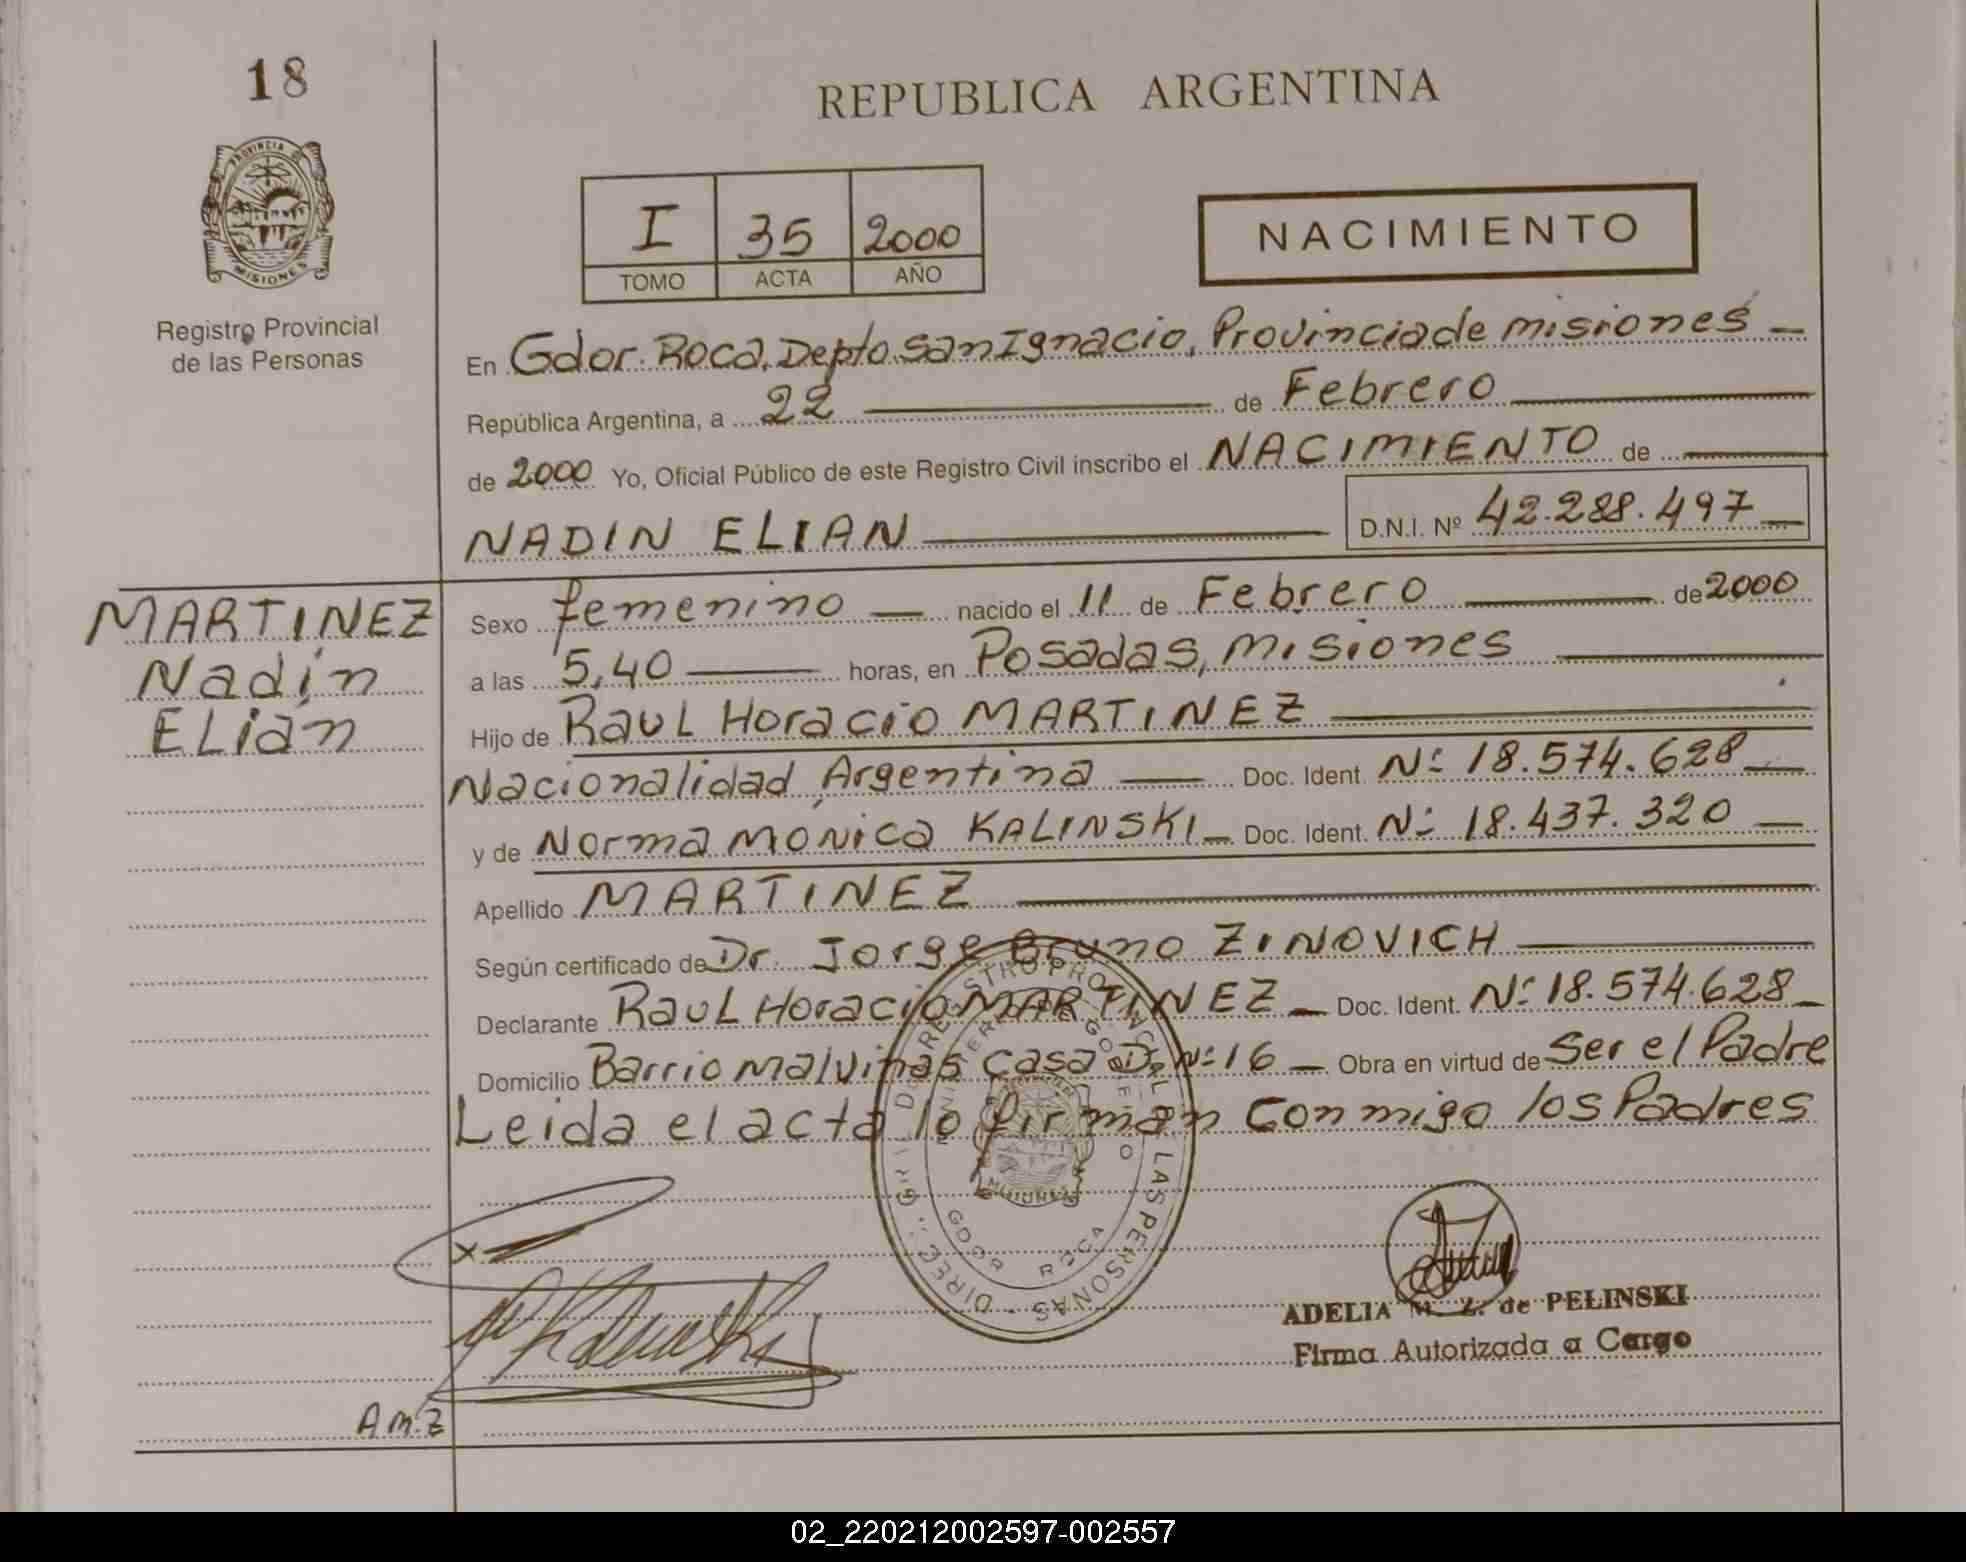 18
REPUBLICA ARGENTINA
PROVINCIA DE
MISIONES
Registro Provincial
de las Personas
I 35 2000
TOMO ACTA AÑO
NACIMIENTO
En Gdor. Roca, Depto San Ignacio, Provincia de misiones
República Argentina, a 22 de Febrero
de 2000 Yo, Oficial Público de este Registro Civil inscribo el NACIMIENTO de
NADIN ELIAN D.N.I. Nº 42.288.497
MARTINEZ
Nadin
ELian
Sexo femenino nacido el 11 de Febrero de 2000
a las 5,40 horas, en Posadas, misiones
Hijo de RauL Horacio MARTINEZ
Nacionalidad Argentina Doc. Ident. Nº 18.574.628
y de Norma MONica KALINSKI Doc. Ident. Nº 18.437.320
Apellido MARTINEZ
Según certificado de Dr. Jorge Bruno ZINOVICH
Declarante RauL Horacio MARTINEZ Doc. Ident. Nº 18.574.628
Domicilio Barrio Malvinas casa D. Nº 16 Obra en virtud de Ser el Padre
Leida el acta lo firman conmigo los Padres
GDOR ROCA
MISIONES
x
ADELIA M. Z. de PELINSKI
Firma Autorizada a Cargo
A.M.Z
02_220212002597-002557